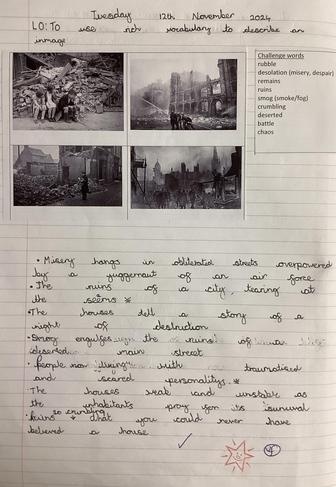 Tuesday 12th November 2024
LO: To use rich vocabulary to describe an
inmage
Challenge words
rubble
desolation (misery, despair)
remains
ruins
smog (smoke/fog)
crumbling
deserted
battle
chaos
• Misery hangs in obliterated streets overpowered
by a juggernaut of an air force
• The ruins of a city, tearing at
the seems *
• The houses tell a story of a
night of destruction
• Smog engulfes the ruins of
deserted main street
• people now living with traumatised
and scared personalitys. *
The houses weak and unstable as
the inhabitants pray for its
• Ruins so crumbling that you could never have
believed a house